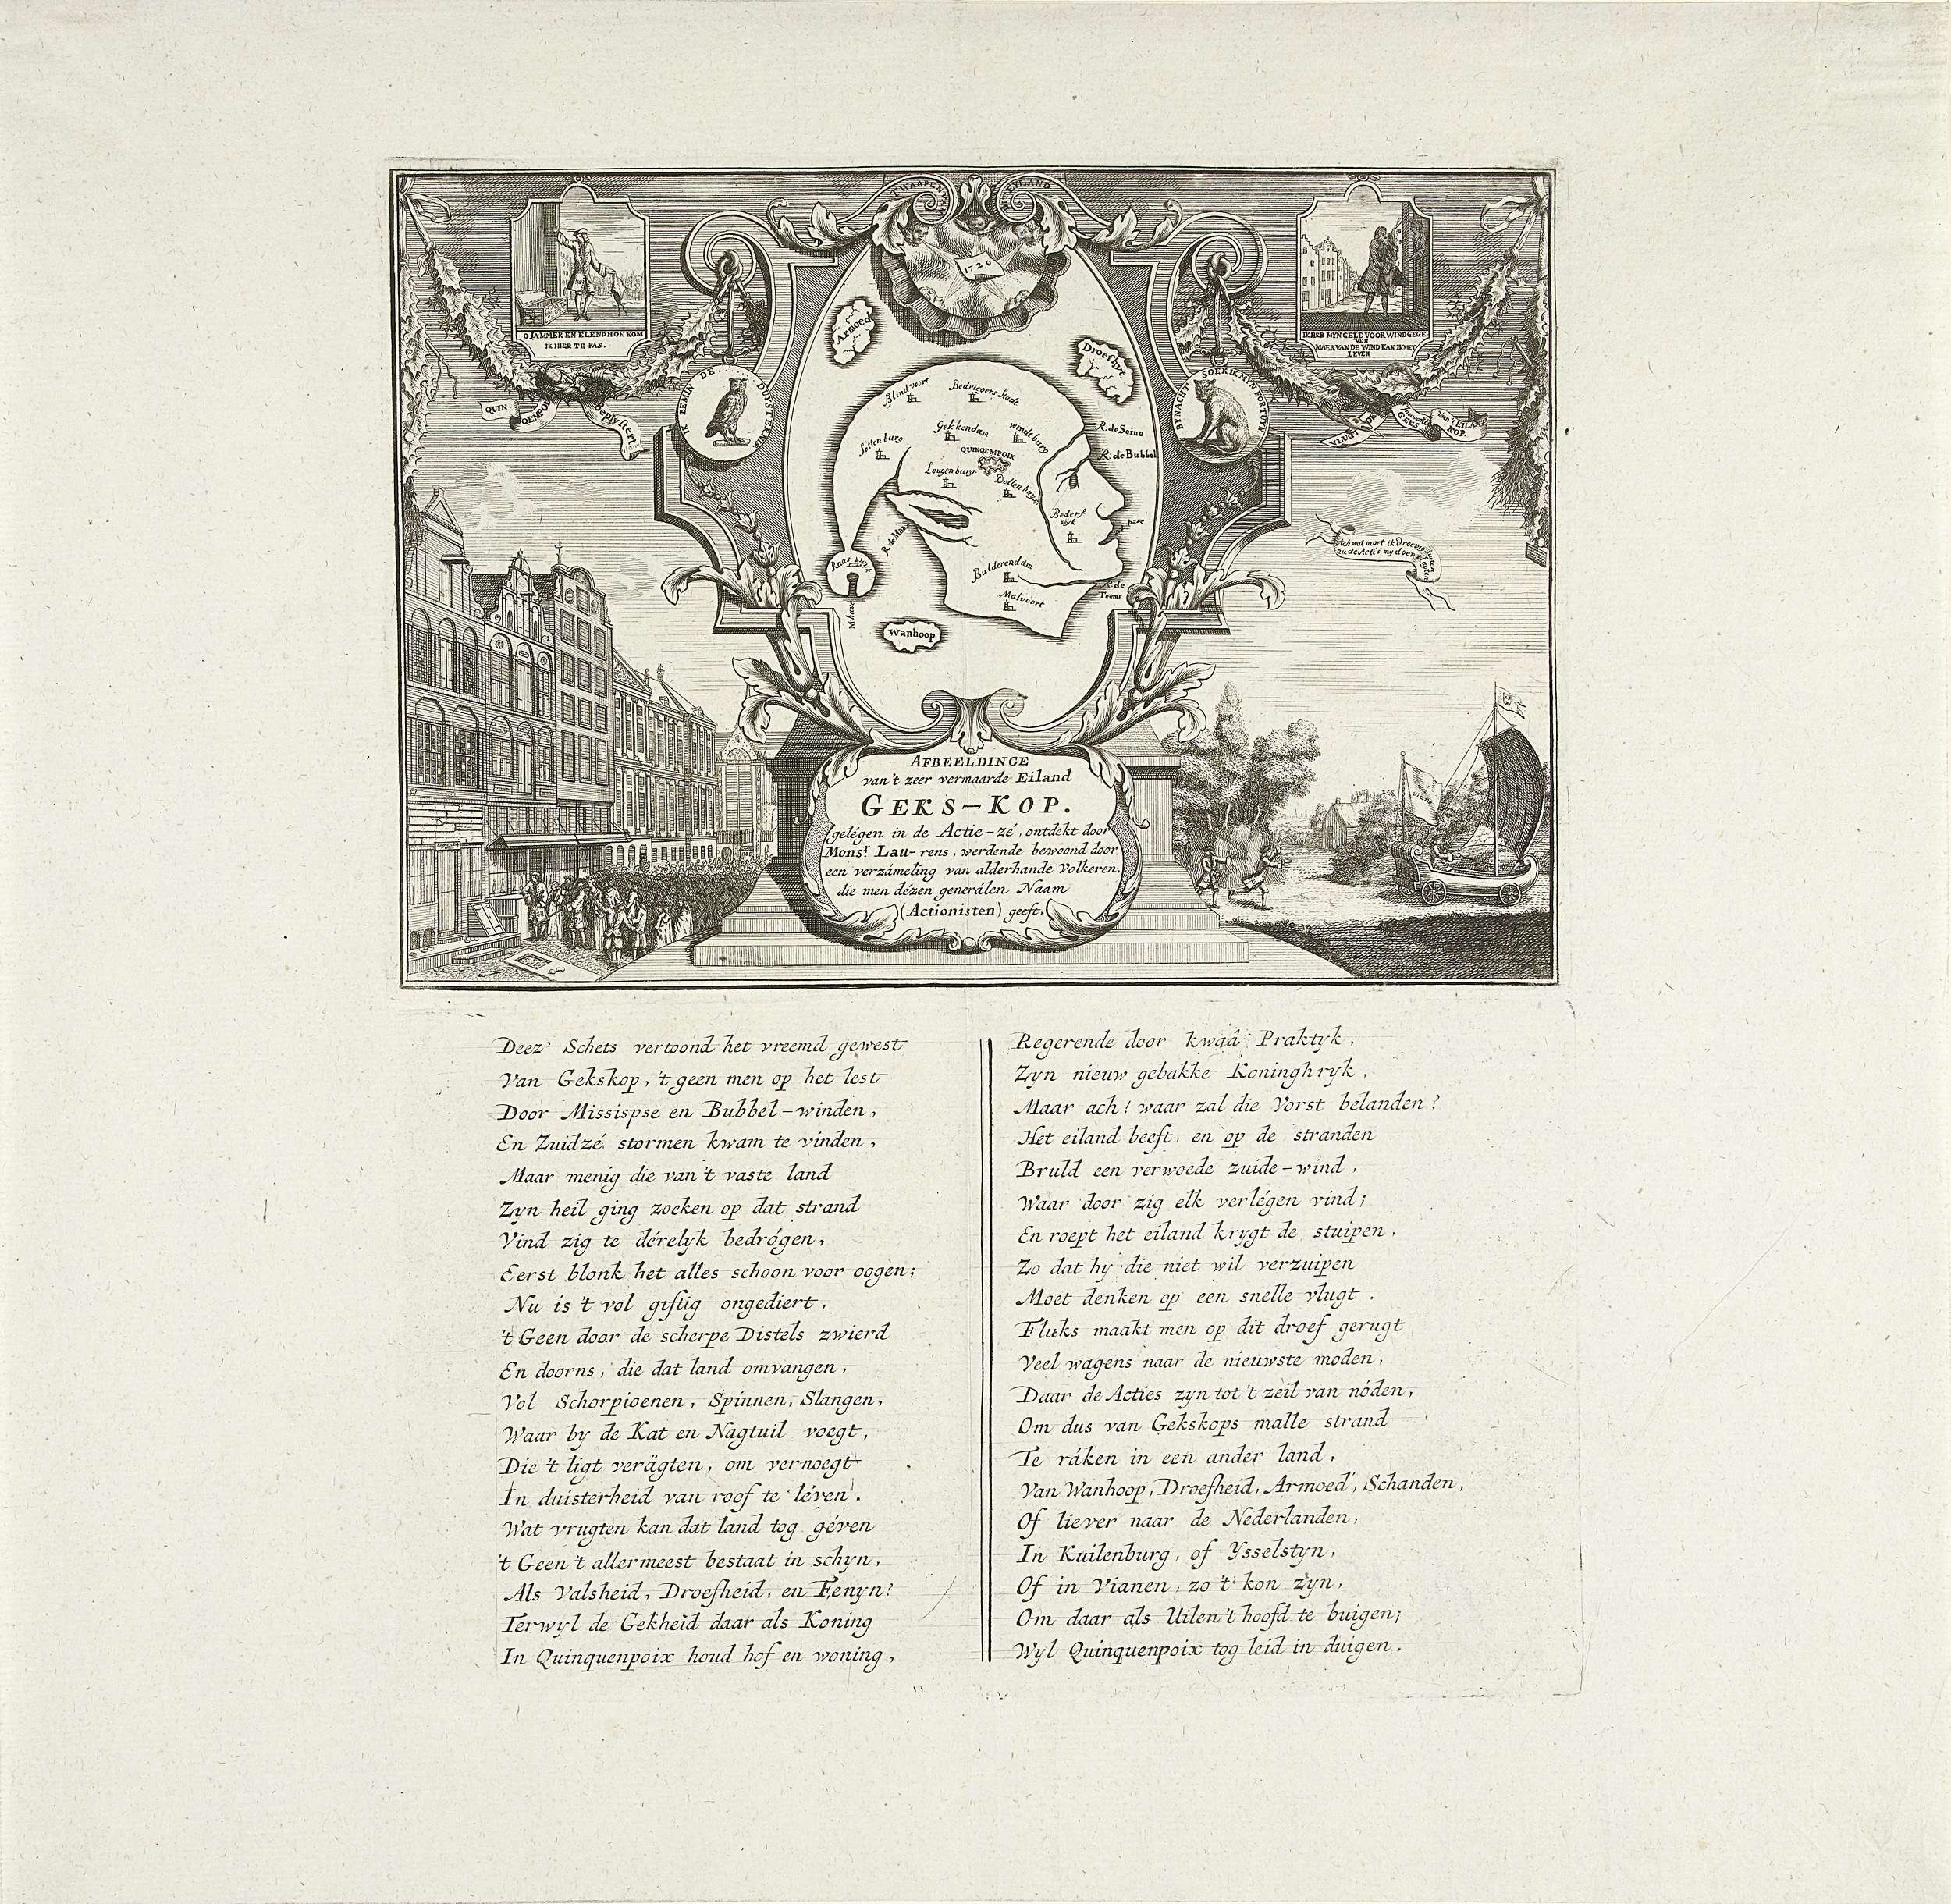 'T WAAPEN VAN
DIT EYLAND
1720
O JAMMER EN ELEND HOE KOM
IK HIER TE PAS.
IK HEB MYN GELD VOOR WIND GEGE
VEN
MAER VAN DE WIND KAN IK NIET
LEVEN
IK BEMIN DE DUYSTERNIS
BY NACHT SOEK IK MYN FORTUYN
QUIN
QEMPOIX
beplystert.
VLUGT
GEKS
KOP.
Armoed
Droefhyt
Blindvoort
Bedriegers Stadt
Sottenburg
Gekkendam
windeburg
QUINQEMPOIX
Leugenburg
R: de Seine
R: de Bubbel
Bederf
wyk
R: de Maas
Bulderendam
Malvoort
R: de
Teems
Wanhoop.
Ach wat moet ik droevig
nu de Actis my doen
AFBEELDINGE
van't zeer vermaarde Eiland
GEKS-KOP.
gelégen in de Actie-zé, ontdekt door
Monsr. Lau-rens, werdende bewoond door
een verzámeling van alderhande Volkeren,
die men dézen generálen Naam
(Actionisten) geeft.
Deez' Schets vertoond het vreemd gewest
Van Gekskop, 't geen men op het lest
Door Missispse en Bubbel-winden,
En Zuidzé stormen kwam te vinden,
Maar menig die van't vaste land
Zyn heil ging zoeken op dat strand
Vind zig te dérelyk bedrógen,
Eerst blonk het alles schoon voor oogen;
Nu is 't vol giftig ongediert,
't Geen door de scherpe Distels zwierd
En doorns, die dat land omvangen,
Vol Schorpioenen, Spinnen, Slangen,
Waar by de Kat en Nagtuil voegt,
Die 't ligt verägten, om vernoegt
In duisterheid van roof te léven.
Wat vrugten kan dat land tog géven
't Geen 't allermeest bestaat in schyn,
Als Valsheid, Droefheid, en Fenyn?
Terwyl de Gekheid daar als Koning
In Quinquenpoix houd hof en woning,
Regerende door kwaâ Praktyk,
Zyn nieuw gebakke Koninghryk,
Maar ach! waar zal die Vorst belanden?
Het eiland beeft, en op de stranden
Bruld een verwoede zuide-wind,
Waar door zig elk verlégen vind;
En roept het eiland krygt de stuipen,
Zo dat hy die niet wil verzuipen
Moet denken op een snelle vlugt.
Fluks maakt men op dit droef gerugt
Veel wagens naar de nieuwste moden,
Daar de Acties zyn tot 't zeil van nóden,
Om dus van Gekskops malle strand
Te ráken in een ander land,
Van Wanhoop, Droefheid, Armoed', Schanden,
Of liever naar de Nederlanden,
In Kuilenburg, of Ysselstyn,
Of in Vianen, zo 't kon zyn,
Om daar als Uilen 't hoofd te buigen;
Wyl Quinquenpoix tog leid in duigen.